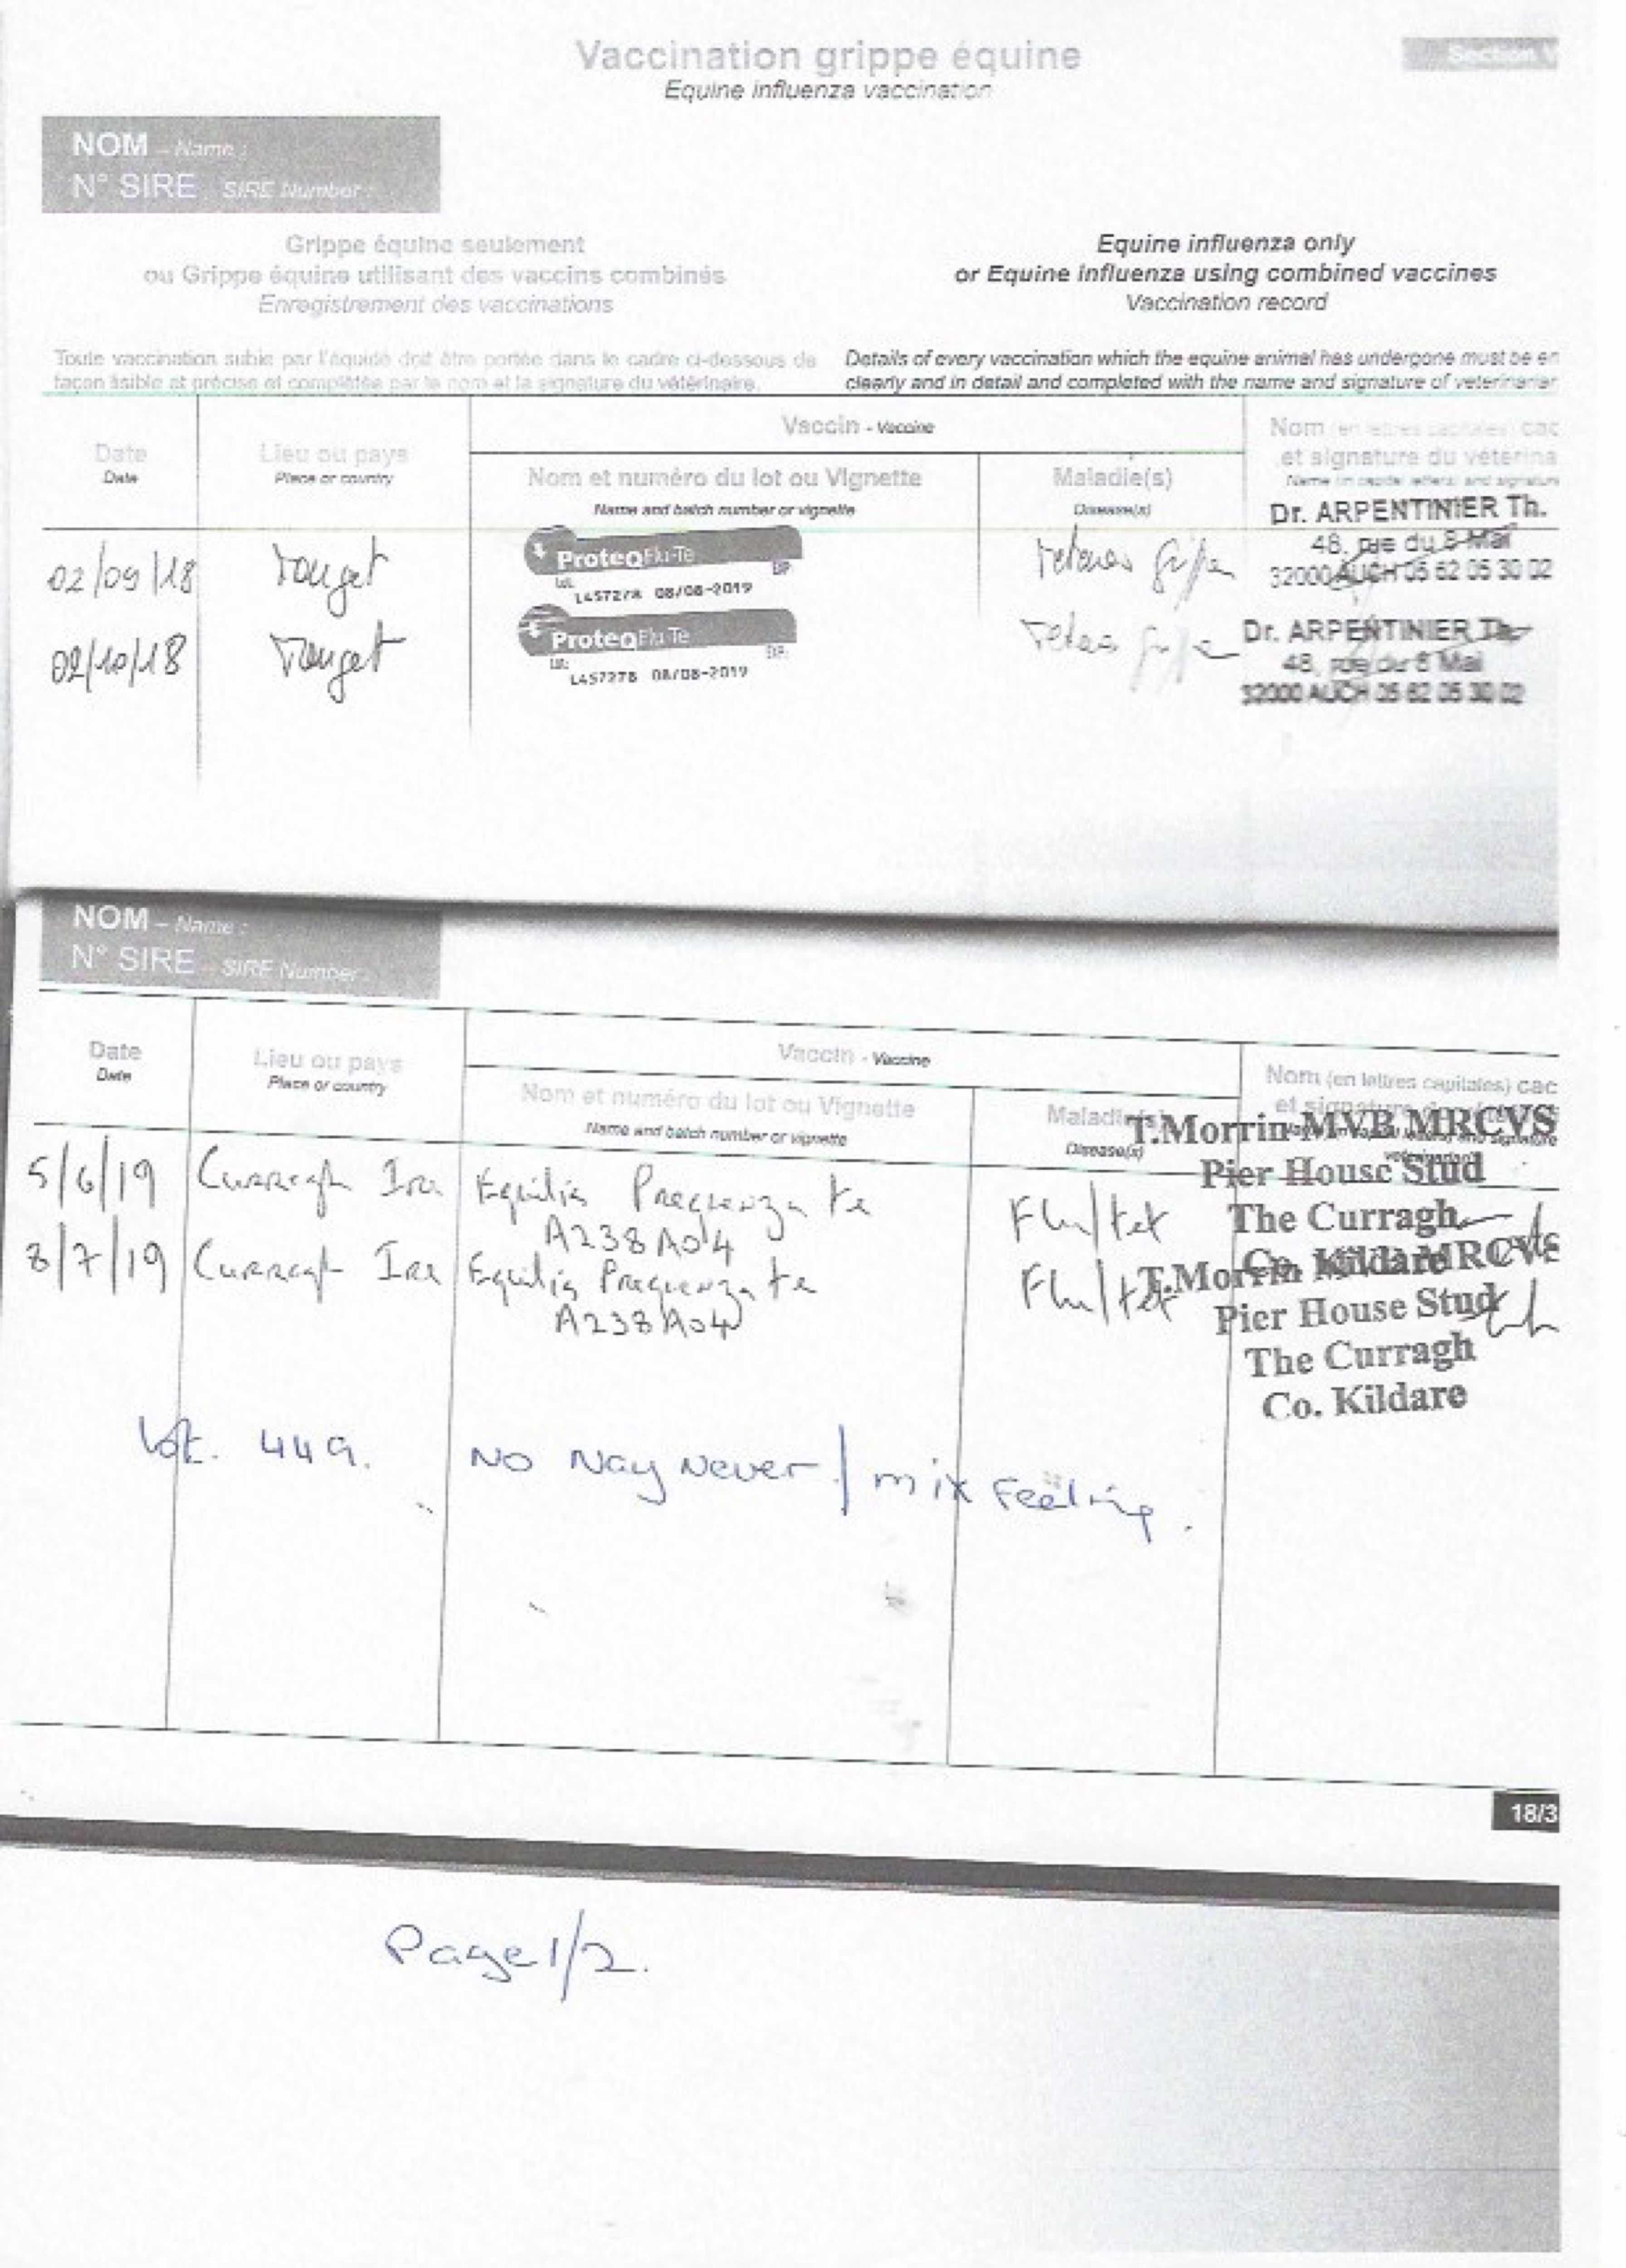 Vaccination grippe équine
Equine influenza vaccination
Section V
NOM - Name :
N° SIRE SIRE Number :
Grippe équine seulement
ou Grippe équine utilisant des vaccins combinés
Enregistrement des vaccinations
Equine influenza only
or Equine Influenza using combined vaccines
Vaccination record
Toute vaccination subie par l'équidé doit être portée dans le cadre ci-dessous de
façon lisible et précise et complétée par le nom et la signature du vétérinaire.
Details of every vaccination which the equine animal has undergone must be en
clearly and in detail and completed with the name and signature of veterinarian
Date
Date
Lieu ou pays
Place or country
Vaccin - Vaccine
Nom et numéro du lot ou Vignette
Name and batch number or vignette
Maladie(s)
Disease(s)
Nom (en lettres capitales) cac
et signature du vétérina
Name (in capital letters) and signature
02/09/18
ProteqFlu-Te
Lot: EXP:
L457278 08/08-2019
Dr. ARPENTINIER Th.
48, rue du 8 Mai
32000 AUCH 05 62 05 30 02
02/10/18
ProteqFlu-Te
Lot: EXP:
L457278 08/08-2019
Dr. ARPENTINIER Th.
48, rue du 8 Mai
32000 AUCH 05 62 05 30 02
NOM - Name :
N° SIRE - SIRE Number :
Date
Date
Lieu ou pays
Place or country
Vaccin - Vaccine
Nom et numéro du lot ou Vignette
Name and batch number or vignette
Maladie(s)
Disease(s)
Nom (en lettres capitales) cac
et signature
5/6/19 Curragh Ire Equilis Prequenza te
A238A04
Flu/tet
T.Morrin MVB MRCVS
Pier House Stud
The Curragh
Co. Kildare
8/7/19 Curragh Ire Equilis Prequenza te
A238A04
Flu/tet
T.Morrin MRCVS
Pier House Stud
The Curragh
Co. Kildare
Lot. 449. No Nay Never / mix Feeling.
18/3
Page 1/2.